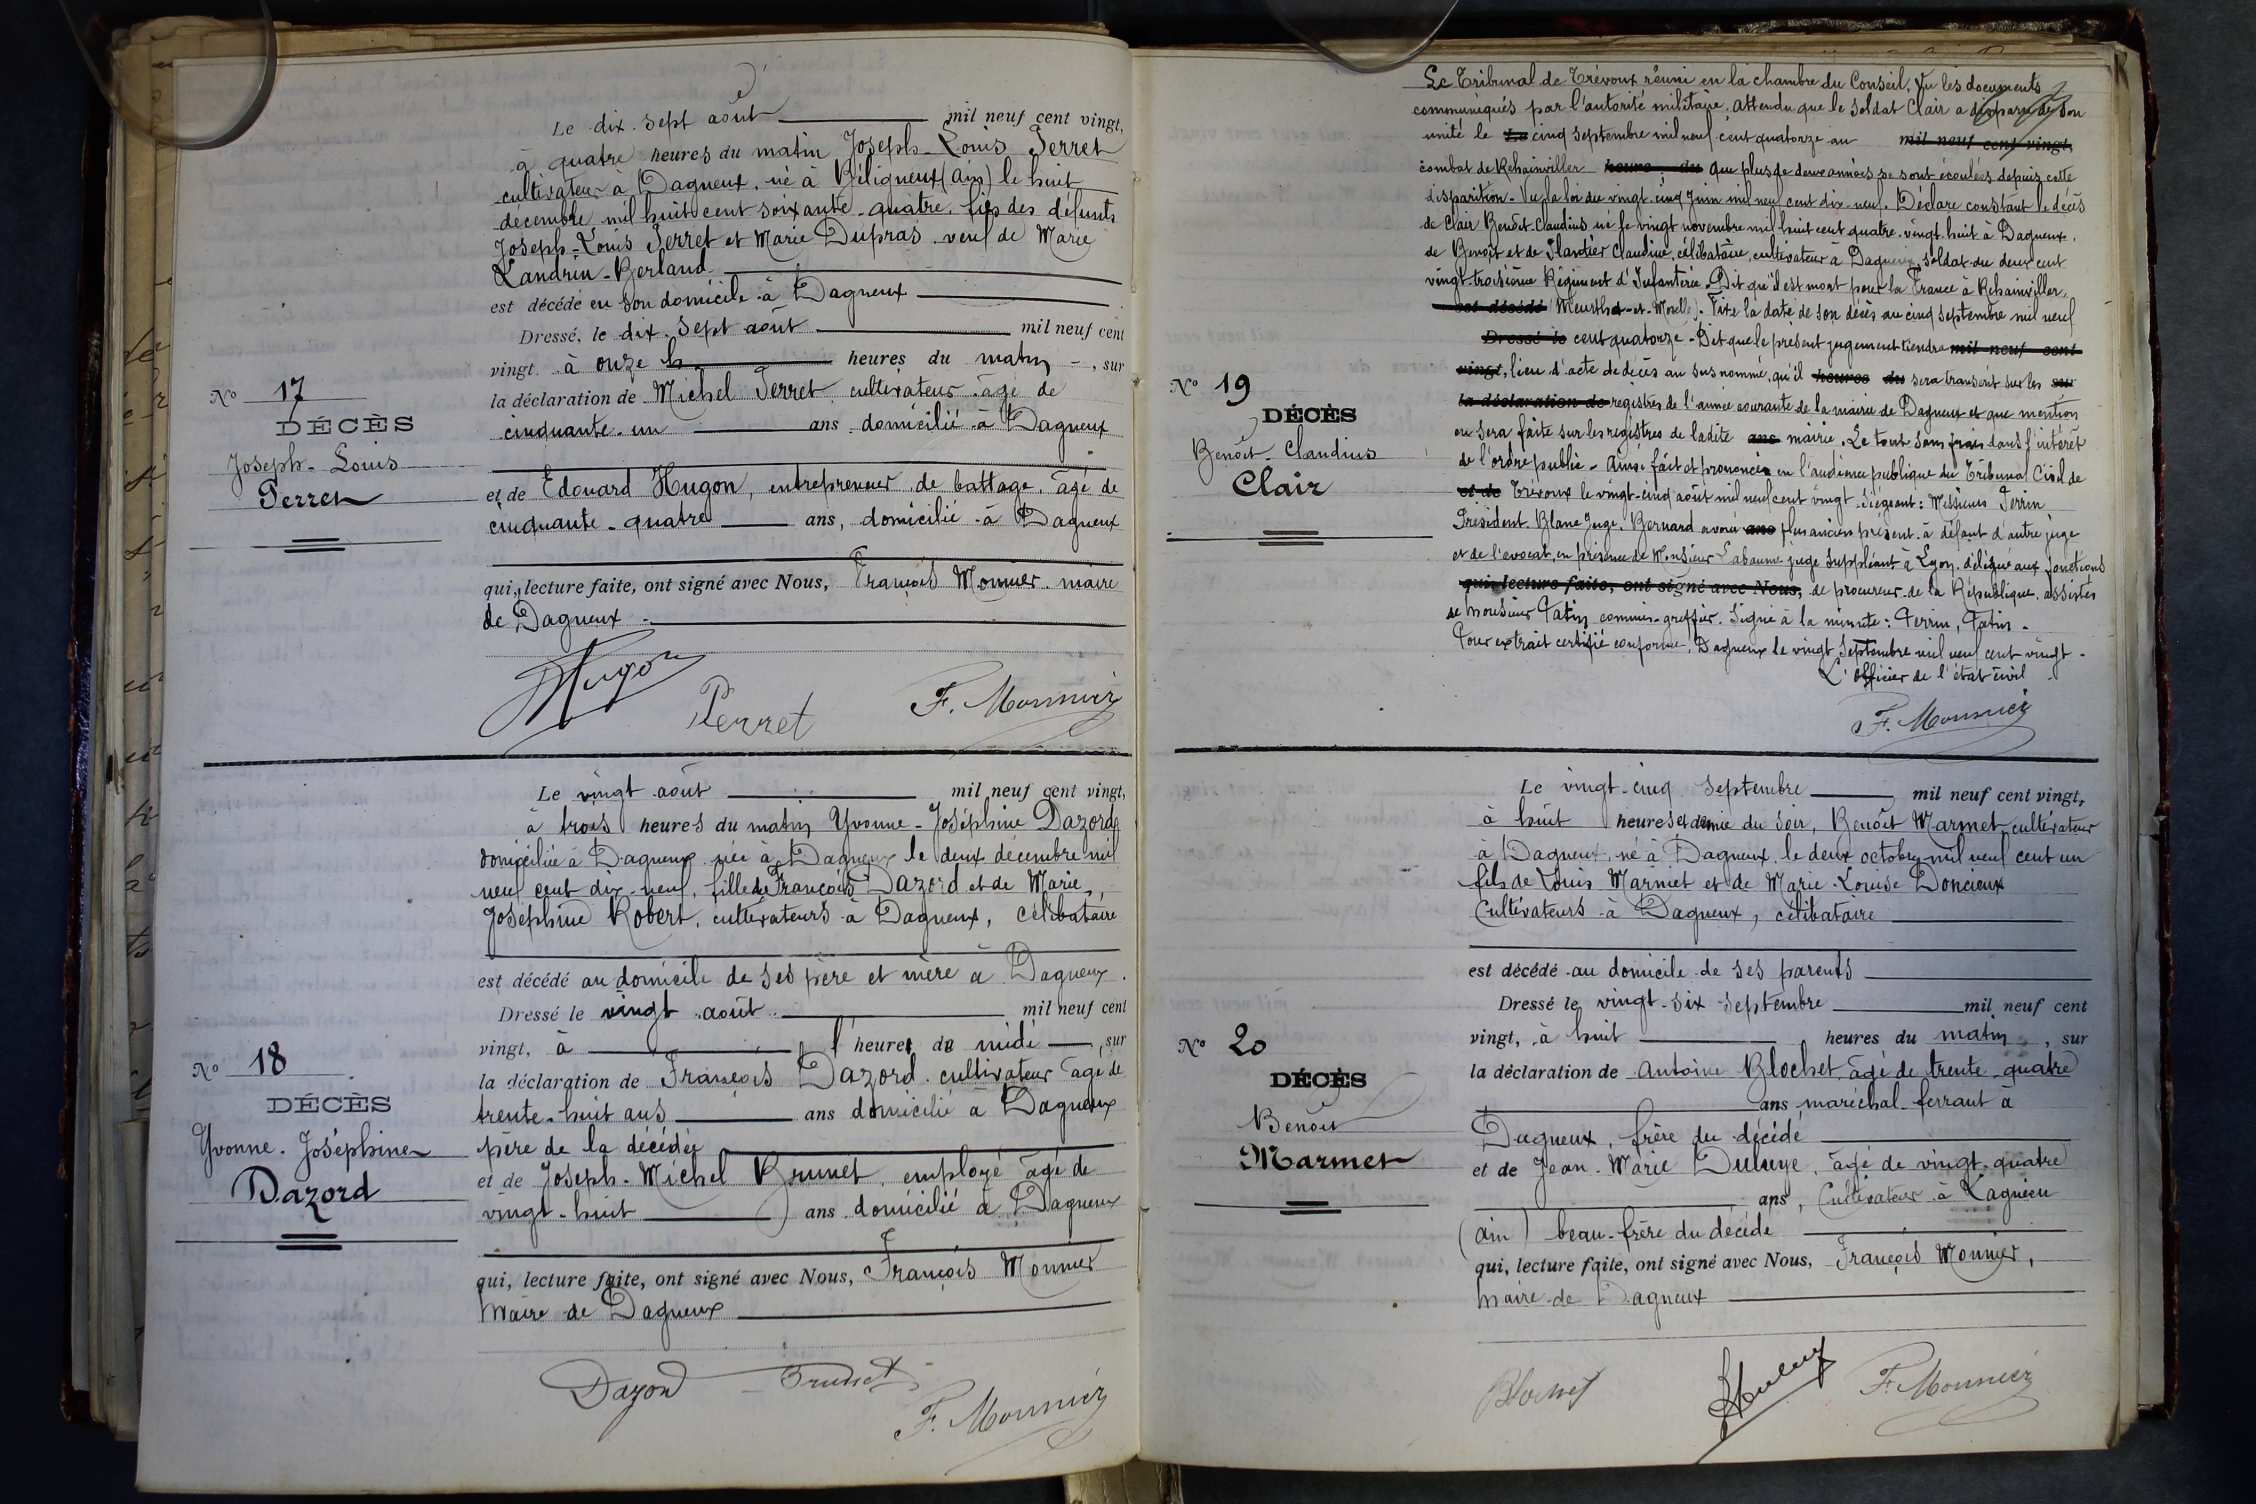 Le dix-sept août mil neuf cent vingt,
à quatre heures du matin Joseph-Louis Perret
cultivateur à Dagneux, né à Béligneux (Ain) le huit
décembre mil huit cent soixante-quatre, fils des défunts
Joseph-Louis Perret et Marie Dupras, veuf de Marie
Landrin-Berland
est décédé en son domicile à Dagneux
Dressé, le dix-sept août mil neuf cent
vingt à onze h heures du matin, sur
la déclaration de Michel Perret, cultivateur âgé de
cinquante-un ans domicilié à Dagneux
Nº 17
DÉCÈS
Joseph-Louis
Perret
et de Edouard Hugon, entrepreneur de battage, âgé de
cinquante-quatre ans, domicilié à Dagneux
qui, lecture faite, ont signé avec Nous, François Monnier maire
de Dagneux.
Hugon
Perret
F. Monnier
Le vingt août mil neuf cent vingt,
à trois heures du matin Yvonne-Joséphine Dazord
domiciliée à Dagneux née à Dagneux le deux décembre mil
neuf cent dix-neuf, fille de François Dazord et de Marie,
Joséphine Robert, cultivateurs à Dagneux, célibataire
est décédé au domicile de ses père et mère à Dagneux.
Dressé le vingt août mil neuf cent
vingt, à l'heure de midi, sur
la déclaration de François Dazord cultivateur âgé de
trente-huit ans ans domicilié à Dagneux
père de la décédée
Nº 18
DÉCÈS
Yvonne-Joséphine
Dazord
et de Joseph-Michel Brunet, employé âgé de
vingt-huit ans domicilié à Dagneux
qui, lecture faite, ont signé avec Nous, François Monnier
Maire de Dagneux
Dazord Brunet
F. Monnier
Le Tribunal de Trévoux réuni en la chambre du Conseil, Vu les documents
communiqués par l'autorité militaire, attendu que le soldat Clair a disparu de son
unité le cinq septembre mil neuf cent quatorze au mil neuf cent vingt,
combat de Rehainviller heure du que plus de deux années se sont écoulées depuis cette
disparition. Vu la loi du vingt-cinq Juin mil neuf cent dix-neuf. Déclare constant le décès
de Clair Benoît-Claudius né le vingt novembre mil huit cent quatre-vingt-huit à Dagneux,
de Benoît et de Plantier Claudine, célibataire, cultivateur à Dagneux, soldat du deux cent
vingt-troisième Régiment d'Infanterie. Dit qu'il est mort pour la France à Rehainviller,
est décédé (Meurthe-et-Moselle). Fixe la date de son décès au cinq septembre mil neuf
Dressé le cent quatorze. Dit que le présent jugement tiendra mil neuf cent
vingt, lieu d'acte de décès au susnommé, qu'il heures du sera transcrit sur les sur
la déclaration de registres de l'année courante de la mairie de Dagneux et que mention
en sera faite sur les registres de ladite ans mairie. Le tout sans frais dans l'intérêt
de l'ordre public. Ainsi fait et prononcé en l'audience publique du Tribunal Civil de
et de Trévoux le vingt-cinq août mil neuf cent vingt. Siégeant: Messieurs Perrin
Président. Blanc Juge. Bernard avoué ans plus ancien présent à défaut d'autre juge
et de l'avocat, en présence de Monsieur Labaume juge suppléant à Lyon, délégué aux fonctions
qui, lecture faite, ont signé avec Nous, de procureur de la République, assistés
de Monsieur Patin commis-greffier. Signé à la minute: Perrin, Patin.
Pour extrait certifié conforme, Dagneux le vingt Septembre mil neuf cent vingt.
L'officier de l'état civil
F. Monnier
Nº 19
DÉCÈS
Benoît-Claudius
Clair
Le vingt-cinq septembre mil neuf cent vingt,
à huit heures et demie du soir, Benoît Marmet cultivateur
à Dagneux, né à Dagneux, le deux octobre mil neuf cent un
fils de Louis Marmet et de Marie-Louise Doncieux
Cultivateurs à Dagneux, célibataire
est décédé au domicile de ses parents
Dressé le vingt-six septembre mil neuf cent
vingt, à huit heures du matin, sur
la déclaration de Antoine Blochet âgé de trente-quatre
ans maréchal-ferrant à
Dagneux, frère du décédé
Nº 20
DÉCÈS
Benoît
Marmet
et de Jean-Marie âgé de vingt-quatre
ans, Cultivateur à Lagnieu
(Ain) beau-frère du décédé
qui, lecture faite, ont signé avec Nous, François Monnier,
Maire de Dagneux
Blochet
F. Monnier